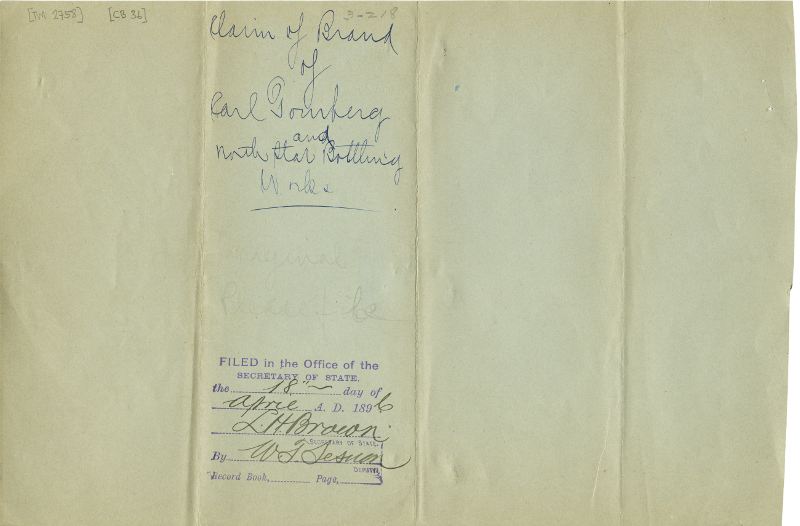 [TM 2758] [CB 36] 3-218
Claim of Brand
of
Carl Tornberg
and
North Star Bottling
Works
original
Please file
FILED in the Office of the
SECRETARY OF STATE,
the 18th day of
April A. D. 1896
L.H. Brown
SECRETARY OF STATE
By W.T. Sesnon
DEPUTY
Record Book, Page,